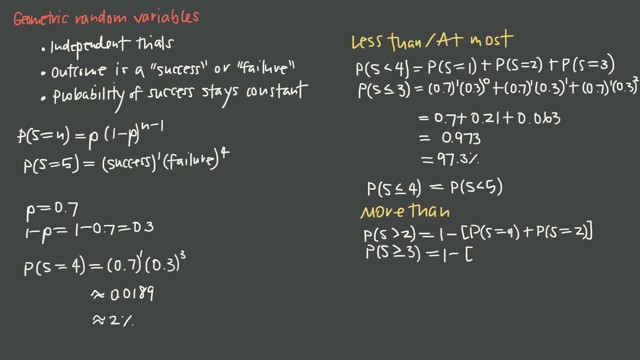 Geometric random variables
• Independent trials
• Outcome is a "success" or "failure"
• Probability of success stays constant
P(S=n) = p(1-p)ⁿ⁻¹
P(S=5) = (success)¹(failure)⁴
p=0.7
1-p=1-0.7=0.3
P(S=4) = (0.7)¹(0.3)³
≈ 0.0189
≈ 2%
Less than/At most
P(S<4) = P(S=1) + P(S=2) + P(S=3)
P(S≤3) = (0.7)¹(0.3)⁰ + (0.7)¹(0.3)¹ + (0.7)¹(0.3)²
= 0.7 + 0.21 + 0.063
= 0.973
= 97.3%
P(S≤4) = P(S<5)
More than
P(S>2) = 1 - [P(S=1) + P(S=2)]
P(S≥3) = 1 - [